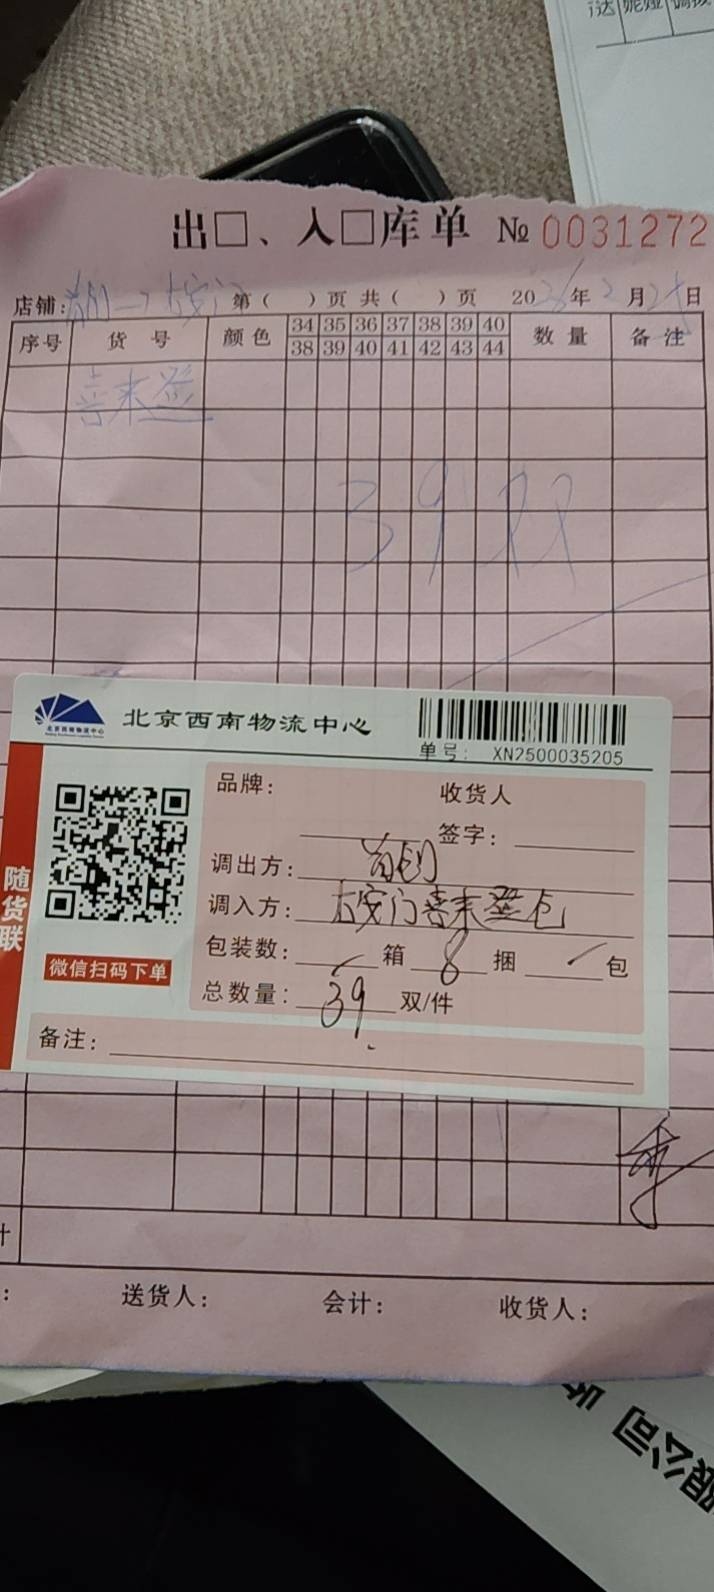 达 妮娅 调拨
出□、入□库单 № 0031272
店铺: 首创—>右安门 第( )页 共( )页 2026年2月25日
序号 货号 颜色 34 35 36 37 38 39 40 数量 备注
38 39 40 41 42 43 44
喜来登
39双
北京西南物流中心
北京西南物流中心
单号: XN2500035205
随货联
微信扫码下单
品牌: 收货人
签字:
调出方: 首创
调入方: 右安门喜来登包
包装数: 箱 8 捆 包
总数量: 39 双/件
备注:
计
送货人: 会计: 收货人:
限公司